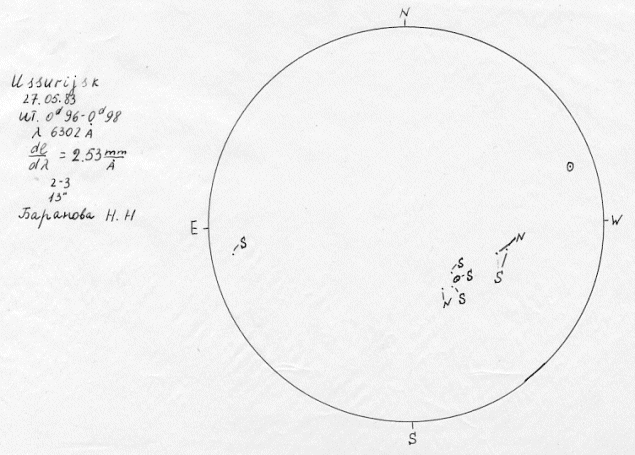 Ussurijsk
27.05.83
UT. 0ᵈ96-0ᵈ98
λ 6302 Å
dl/dλ = 2.53 mm/Å
2-3
13"
Баранова Н.Н
N
E
W
S
S
N
S
S
S
N
S
S